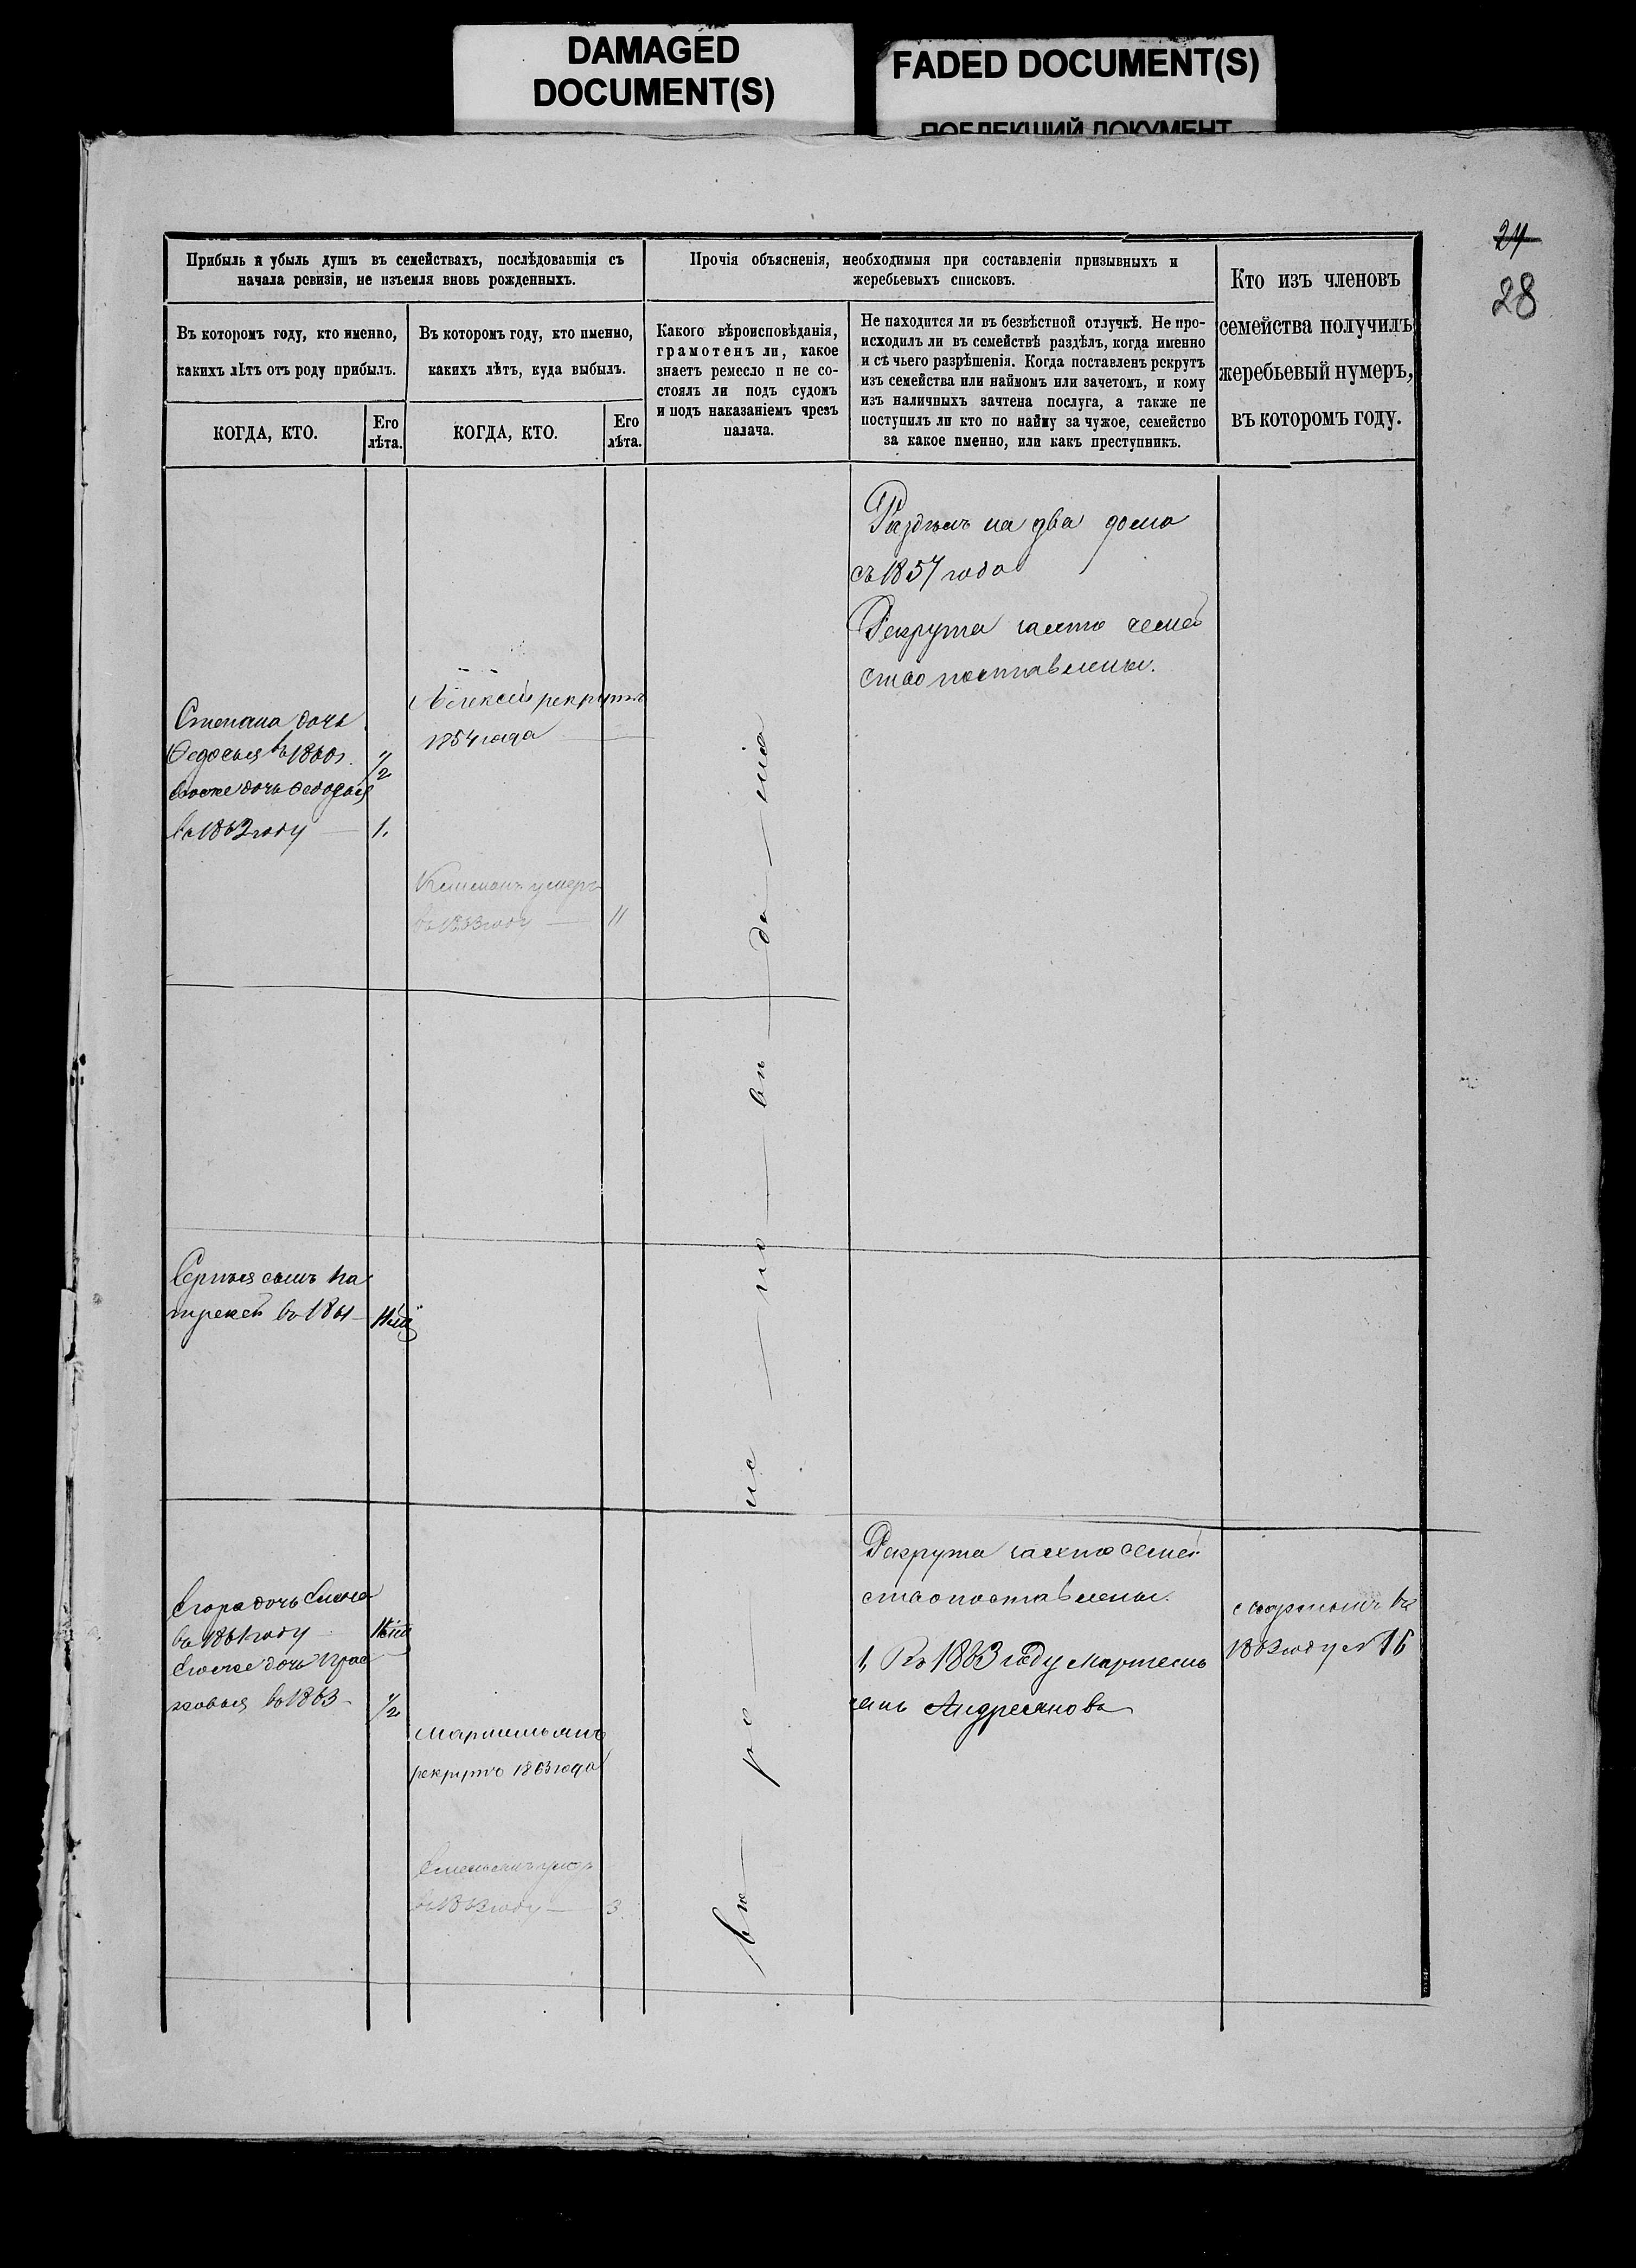 DAMAGED
DOCUMENT(S)
FADED DOCUMENT(S)
ПОБЛЕКШИЙ ДОКУМЕНТ
24
28
Прибыль и убыль душъ въ семействахъ, послѣдовавшія съ
начала ревизіи, не изъемля вновь рожденныхъ.
Прочія объясненія, необходимыя при составленіи призывныхъ и
жеребьевыхъ списковъ.
Кто изъ членовъ
семейства получилъ
жеребьевый нумеръ,
въ которомъ году.
Въ которомъ году, кто именно,
какихъ лѣтъ отъ роду прибылъ.
Въ которомъ году, кто именно,
какихъ лѣтъ, куда выбылъ.
Какого вѣроисповѣданія,
грамотенъ ли, какое
знаетъ ремесло и не со-
стоялъ ли подъ судомъ
и подъ наказаніемъ чрезъ
палача.
Не находится ли въ безвѣстной отлучкѣ. Не про-
исходилъ ли въ семействѣ раздѣлъ, когда именно
и съ чьего разрѣшенія. Когда поставленъ рекрутъ
изъ семейства или наймомъ или зачетомъ, и кому
изъ наличныхъ зачтена послуга, а также не
поступилъ ли кто по найму за чужое, семейство
за какое именно, или какъ преступникъ.
КОГДА, КТО.
Его
лѣта.
КОГДА, КТО.
Его
лѣта.
Раздѣлъ на два дома
съ 1857 года
Рекрута семей
ство поставлены.
Алексѣй рекрутъ
1854 года
Степана дочь
Ѳедосья въ 1860 г. 1/2
дочь
въ 1862 году 1.
умеръ
въ 1863 году 11
Сергѣя сынъ Па
трекей въ 1861
Рекрута семей
ство поставлены.
1, Въ 1863 году Мартемь
янъ Андреяновъ
въ
1862 году № 16
Егора дочь
въ 1861 году
дочь Прас
ковья въ 1863 1/2
Мартемьянъ
рекрутъ 1863 года
Емельянъ
въ 1862 году 3.
вѣ ро ис по вѣ да нія